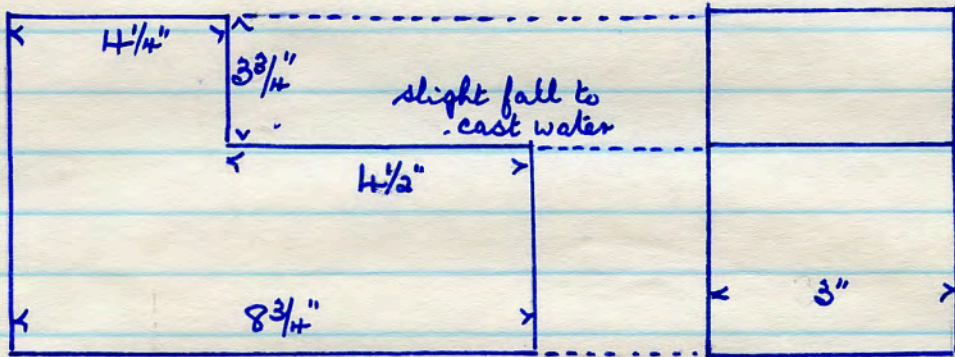 4 1/4"
3 3/4"
slight fall to
cast water
4 1/2"
8 3/4"
3"